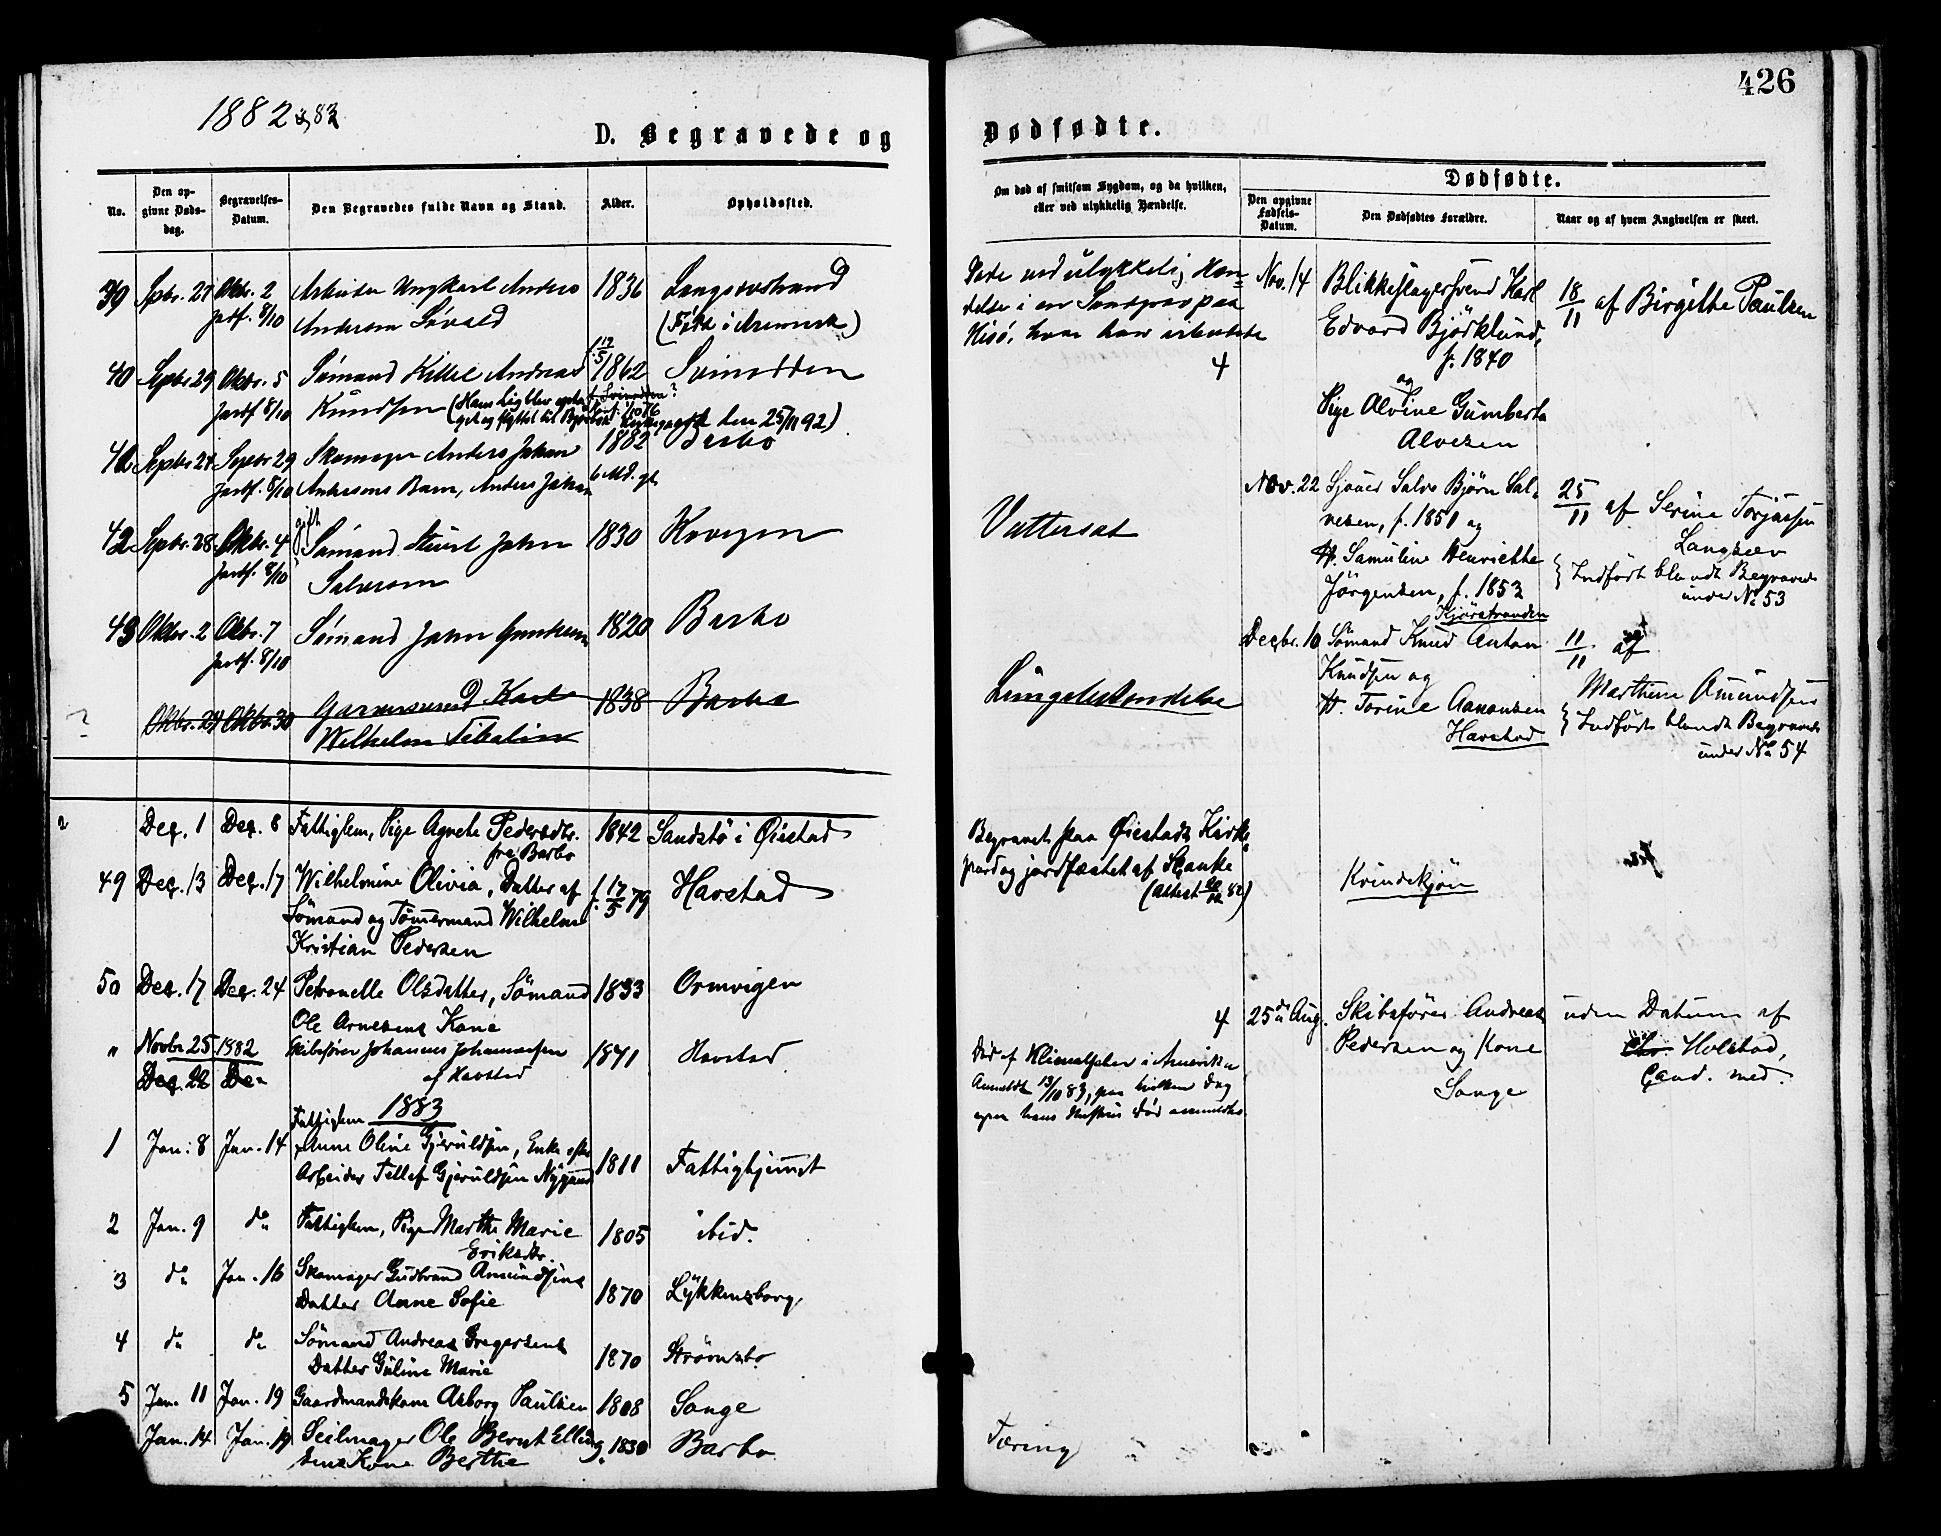 1882 & 83
D. Begravede og
No.
Den op-
givne Døds-
dag.
Begravelses-
Datum.
Den Begravedes fulde Navn og Stand.
Alder.
Opholdssted.
39 Spbr. 27 Oktr. 2 Arbeider Ungkarl Anders 1836 Langsævstrand
Jordf. 8/10 Anderson
40 Septbr 29 Oktbr. 5 Sømand Kittel Andreas 1862
Jordf. 8/10 Knudsen (Hans Lig blev
den 25/11 92)
41 Septbr 24 Septbr 29 Skomager Anders Johan 1882 Barbo
Jordf. 8/10 Andersens Barn, Anders Johan 6 Md. gl.
42 Septbr. 28 Oktbr. 4 gift Sømand John 1830
Jordf. 8/10
43 Oktbr. 2 Oktbr. 7 Sømand John 1820 Barbo
Jordf. 8/10
? Oktbr. 24 Oktbr. 30 Karl 1838 Barbo
Wilhelm
Dec. 1 Dec. 8 Fattiglem, Pige Agnete Pedersdtr. 1842 Sandstö i Øiestad
fra Barbo
49 Dec. 13 Dec. 17 Wilhelmine Olivia, Datter af f. 17/5 79 Havstad
Sømand og Tømermand Wilhelm
Kristian Pedersen
50 Dec. 17 Dec. 24 Petronelle Olsdatter, Sømand 1833 Ormvigen
Ole Arnesens Kone
" Novbr. 25 1882 Skibsfører Johannes Johannessen 1841 Havstad
Dec. 22 De- af Havstad
1883
Fattiglem
1 Jan: 8 Jan. 14 Anne Oline Gjeruldsen, Enke efter 1811 Fattighjemmet
Arbeider Tellef Gjeruldsen
2 Jan. 9 do Fattiglem, Pige Marthe Marie 1805 ibid.
Eriksdtr.
3 do Jan. 16 Skomager Gudbrand Amundsens 1870 Lykkensborg
Datter Anne Sofie
4 do do Sømand Andreas Gregersens 1870 Strømsbo
Datter Guline Marie
5 Jan. 11 Jan. 19 Gaardmandskone Asborg Paulsen 1808 Songe
Jan. 14 Jan. 19 Seilmager Ole Bernt Elling- 1830 Barbo
sens Kone Berthe
426
Dødfødte.
Om død af smitsom Sygdom, og da hvilken,
eller ved ulykkelig Hændelse.
Dødfødte.
Den opgivne
Fødsels-
Datum.
Den Dødfødtes Forældre.
Naar og af hvem Angivelsen er skeet.
Døde ved ulykkelig Hæn-
delse i en Sandgrav paa
Hisö, hvor han arbeidede
4
Nov. 14 Blikkeslagersvend Karl 18/11 af Birgithe Paulsen
Edvard Björklund,
f. 1840
og
Pige Alvine Gumberta
Alvesen
Vattersot
Nov. 22 Sjouer Salve Bjørn Sal- 25/11 af Serine Torjussen
vesen, f. 1851 og Langsæv
H. Samuline Henriette } Indført blandt Begravede
Jörgensen, f. 1853 under No 53
Kjörstranden
Decbr. 10 Sømand Knud Anton 11/11 af
Knudsen og Marthine Amundsen
H. Torine Aanonsen } Indført blandt Begravede
Havstad under No 54
Lungebetændelse
Begravet paa Øiestads Kirke-
gaard og jordfæstet af Skanke
(Attest 82)
Kvindekjön
4 25de Aug. Skibsfører Andreas uden Datum af
Pedersen og Kone Chr. Holstad,
Songe Cand. med.
Død af Klimatfeber i Amerika
Anmeldt 13/10 83, paa hvilken Dag
hans Hustrus Død anmeldtes
Tæring